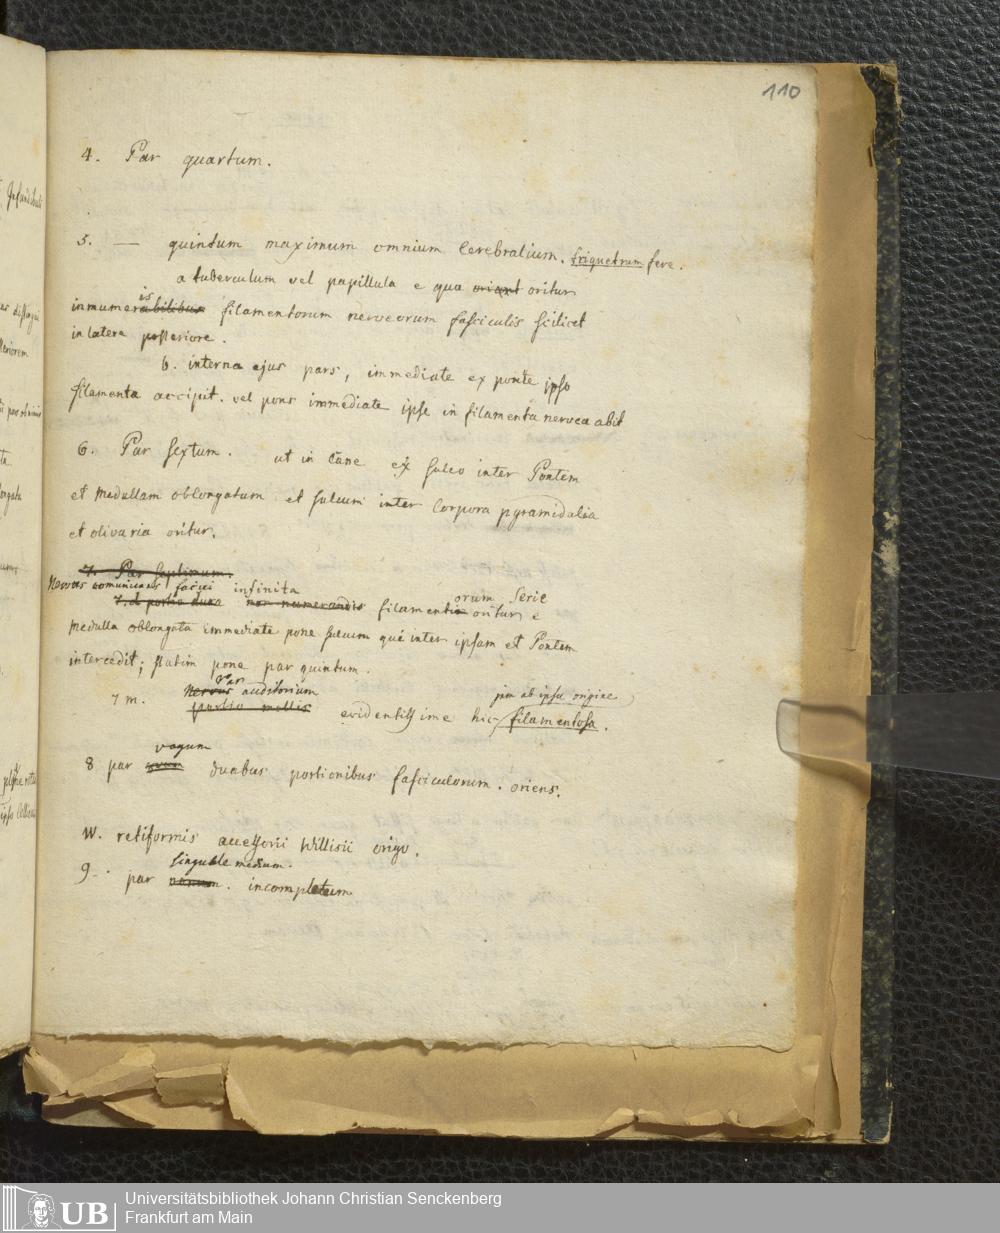 110
4. Par quartum.
5. — quintum maximum omnium Cerebralium. triquetrum fere.
a tuberculum vel papillula e qua oriant oritur
is
innumerabilibus filamentorum nerveorum fasciculis scilicet
in latere posteriore.
b. interna ejus pars, immediate ex ponte ipso
filamenta accipit. vel pons immediate ipse in filamenta nervea abit
6. Par sextum. ut in Cane ex sulco inter Pontem
et Medullam oblongatum et sulcum inter Corpora pyramidalia
et olivaria oritur.
7. Par septimum.
Nervus communicans faciei infinita orum serie
7. d portio dura non numerandis filamentis oritur e
Medulla oblongata immediate pone sulcum qui inter ipsam et Pontem
intercedit; statim pone par quintum.
par
7 m. Nervus auditorium jam ab ipsa origine
portio mollis evidentissime hic filamentosa.
vagum
8 par duabus portionibus fasciculorum. oriens.
W. retiformis accessorii Willisii origo.
linguale medium.
9. par nonum. incompletum
Infundibuli
distingui
teriorem
ta
longata
Universitätsbibliothek Johann Christian Senckenberg
Frankfurt am Main
UB